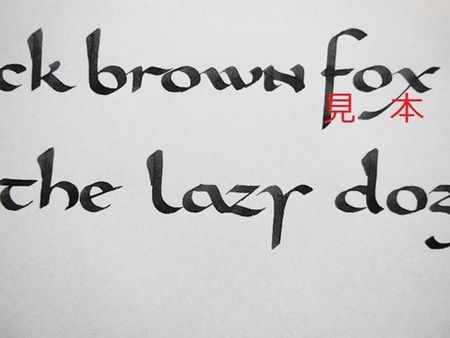 ck brown fox
見本
the lazy dog